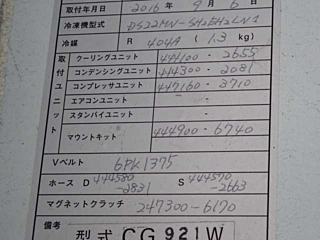 取付年月日 2016 年 9 月 6 日
冷凍機型式 DS22MN-SH2BH2LN1
冷媒 R 404A (1.3 kg)
取付ユニット
クーリングユニット 444100-2655
コンデンシングユニット 444300-2081
コンプレッサユニット 447160-3710
エアコンユニット -
スタンバイユニット -
マウントキット 444900-6740
Vベルト 6PK1375
ホース D 444580-2831 S 444570-2663
マグネットクラッチ 247300-6170
備考
型式 CG921W